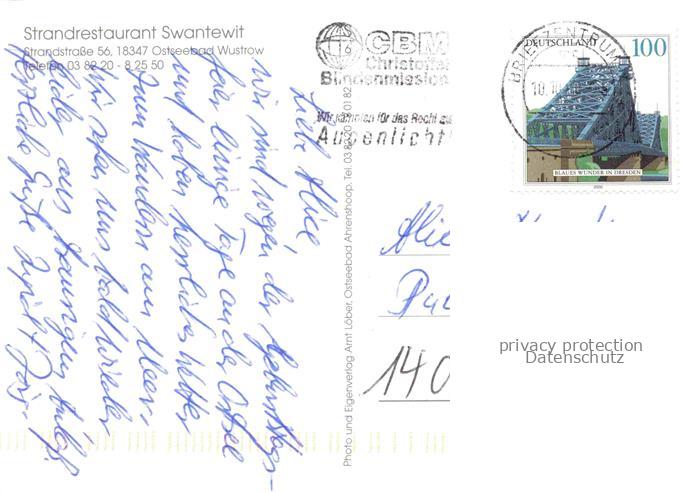 Strandrestaurant Swantewit
Strandstraße 56, 18347 Ostseebad Wustrow
Telefon 03 82 20 - 8 25 50
CBM
Christoffel
Blindenmission
Wir kämpfen für das Recht auf
Augenlicht!
BRIEFZENTRUM
10.10.
DEUTSCHLAND
100
BLAUES WUNDER IN DRESDEN
2000
Liebe Alice,
wir sind wegen der Geburtstags-
feier einige Tage an der Ostsee
und haben herrliches Wetter
zum Wandern am Meer.
Wir sehen uns bald wieder
leider aus traurigem Anlaß
Herzliche Grüße
Photo und Eigenverlag Arnt Löber, Ostseebad Ahrenshoop, Tel. 03 82 20 / 8 01 82
Alic
140
privacy protection
Datenschutz